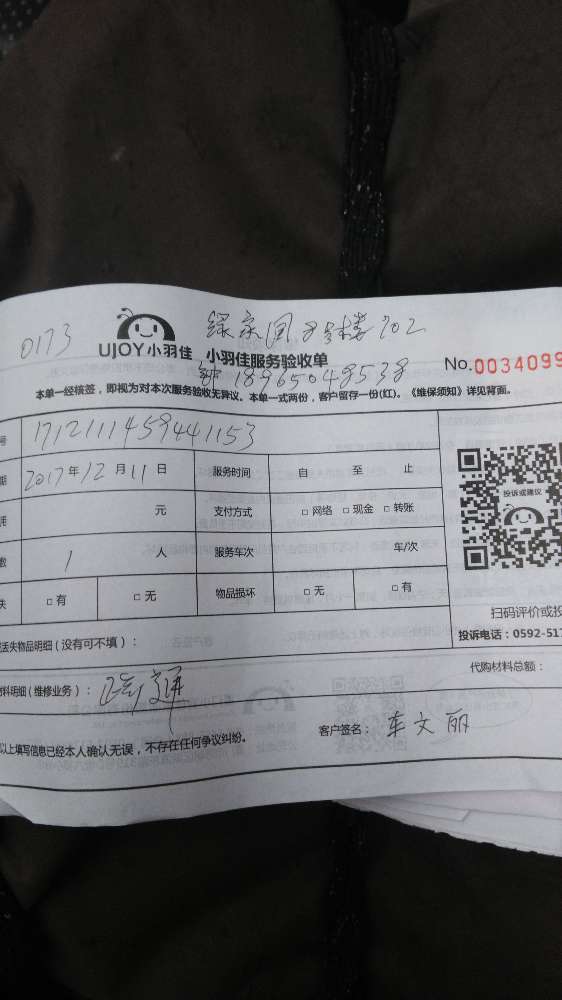 0173
UJOY小羽佳
8号楼702
小羽佳服务验收单
No.0034099
18965048538
本单一经核签，即视为对本次服务验收无异议。本单一式两份，客户留存一份(红)。《维保须知》详见背面。
号 1712111459441153
期 2017年12月11日 服务时间 自 至 止
用 元 支付方式 □ 网络 □ 现金 □ 转账
数 1 人 服务车次 车/次
失 □ 有 □ 无 物品损坏 □ 无 □ 有
投诉或建议
扫码评价或投
投诉电话：0592-517
丢失物品明细（没有可不填）：
代购材料总额：
材料明细（维修业务）：
以上填写信息已经本人确认无误，不存在任何争议纠纷。
客户签名： 车文丽